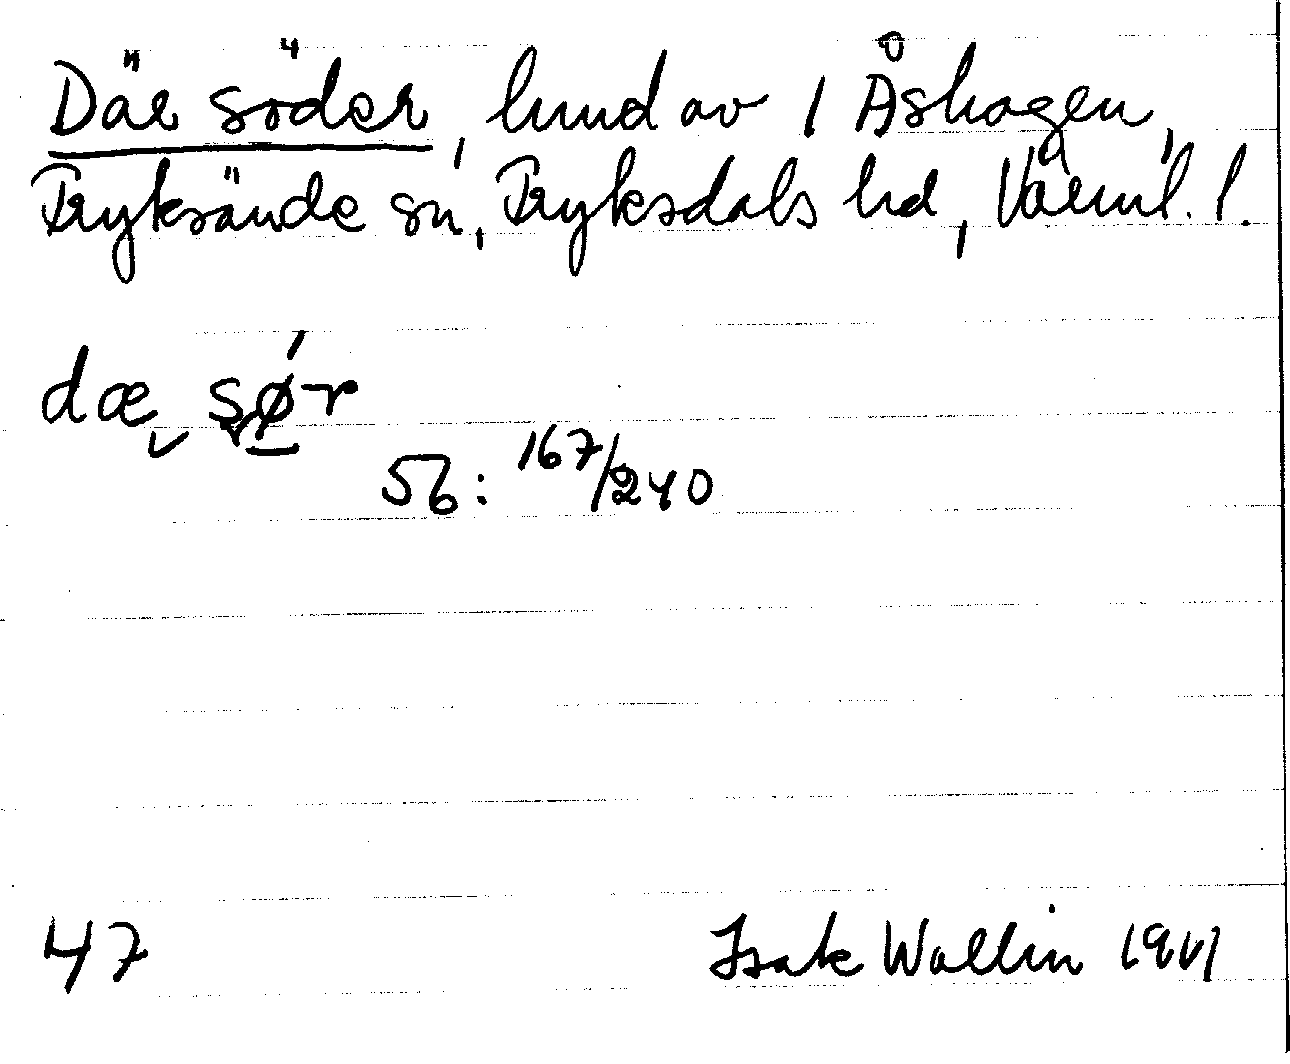 Där söder, lund av 1 Åshagen,
Fryksände sn, Fryksdals hd, Värml. l.
dæ sǿ̣r
56: 167/240
47
Isak Wallin 1941